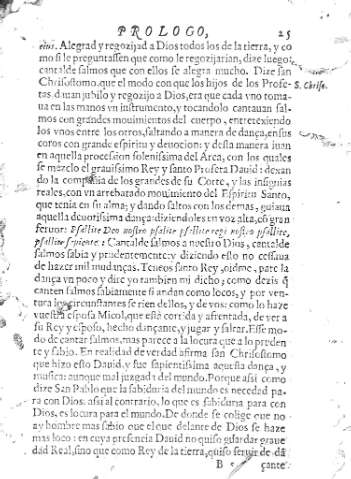 PROLOGO, 25
eius. Alegrad y regozijad a Dios todos los de la tierra, y co
mo si le preguntassen que como le regozijarian, dize luego:
cantalde salmos que con ellos se alegra mucho. Dize san
Chrisostomo, que el modo con que los hijos de los Profe- S. Chriso.
tas dauan jubilo y regozijo a Dios, era que cada vno toma-
ua en las manos vn instrumento, y tocandolo cantauan sal-
mos con grandes mouimientos del cuerpo, entretexiendo
los vnos entre los otros, saltando a manera de dança, en sus
coros con grande espiritu y deuocion: y desta manera iuan
en aquella procession solenissima del Arca, con los quales
se mezclo el grauissimo Rey y santo Profeta Dauid: dexan
do la compañia de los grandes de su Corte, y las insignias
reales, con vn arrebatado mouimiento del Espiritu Santo,
que tenia en su alma; y dando saltos con los demas, guiaua
aquella deuotissima dança: diziendoles en voz alta, cõ gran
feruor: Psallite Deo nostro psallite psallite regi nostro psallite,
psallite sapienter: Cantalde salmos a nuestro Dios, cantalde
salmos sabia y prudentemente: y diziendo esto no cessaua
de hazer mil mudanças. Teneos santo Rey, oidme, pare la
dança vn poco y dire yo tambien mi dicho; como dezis q̃
canten salmos sabiamente si andan como locos, y por ven
tura los circunstantes se rien dellos, y de vos: como lo haze
vuestra esposa Micol, que està corrida y afrentada, de ver a
su Rey y esposo, hecho dançante, y jugar y saltar. Esse mo-
do de cantar salmos, mas parece a la locura que a lo pruden
te y sabio. En realidad de verdad afirma san Chrisostomo
que hizo esto Dauid, y fue sapientissima aquella dança, y
musica: aunque mal juzgada del mundo. Porque assi como
dize San Pablo que la sabiduria del mundo es necedad pa-
ra con Dios: assi al contrario, lo que es sabiduria para con
Dios, es locura para el mundo. De donde se colige que no
ay hombre mas sabio que el que delante de Dios se haze
mas loco: en cuya presencia Dauid no quiso guardar graue
dad Real, sino que como Rey de la tierra, quiso seruir de dã
B çante